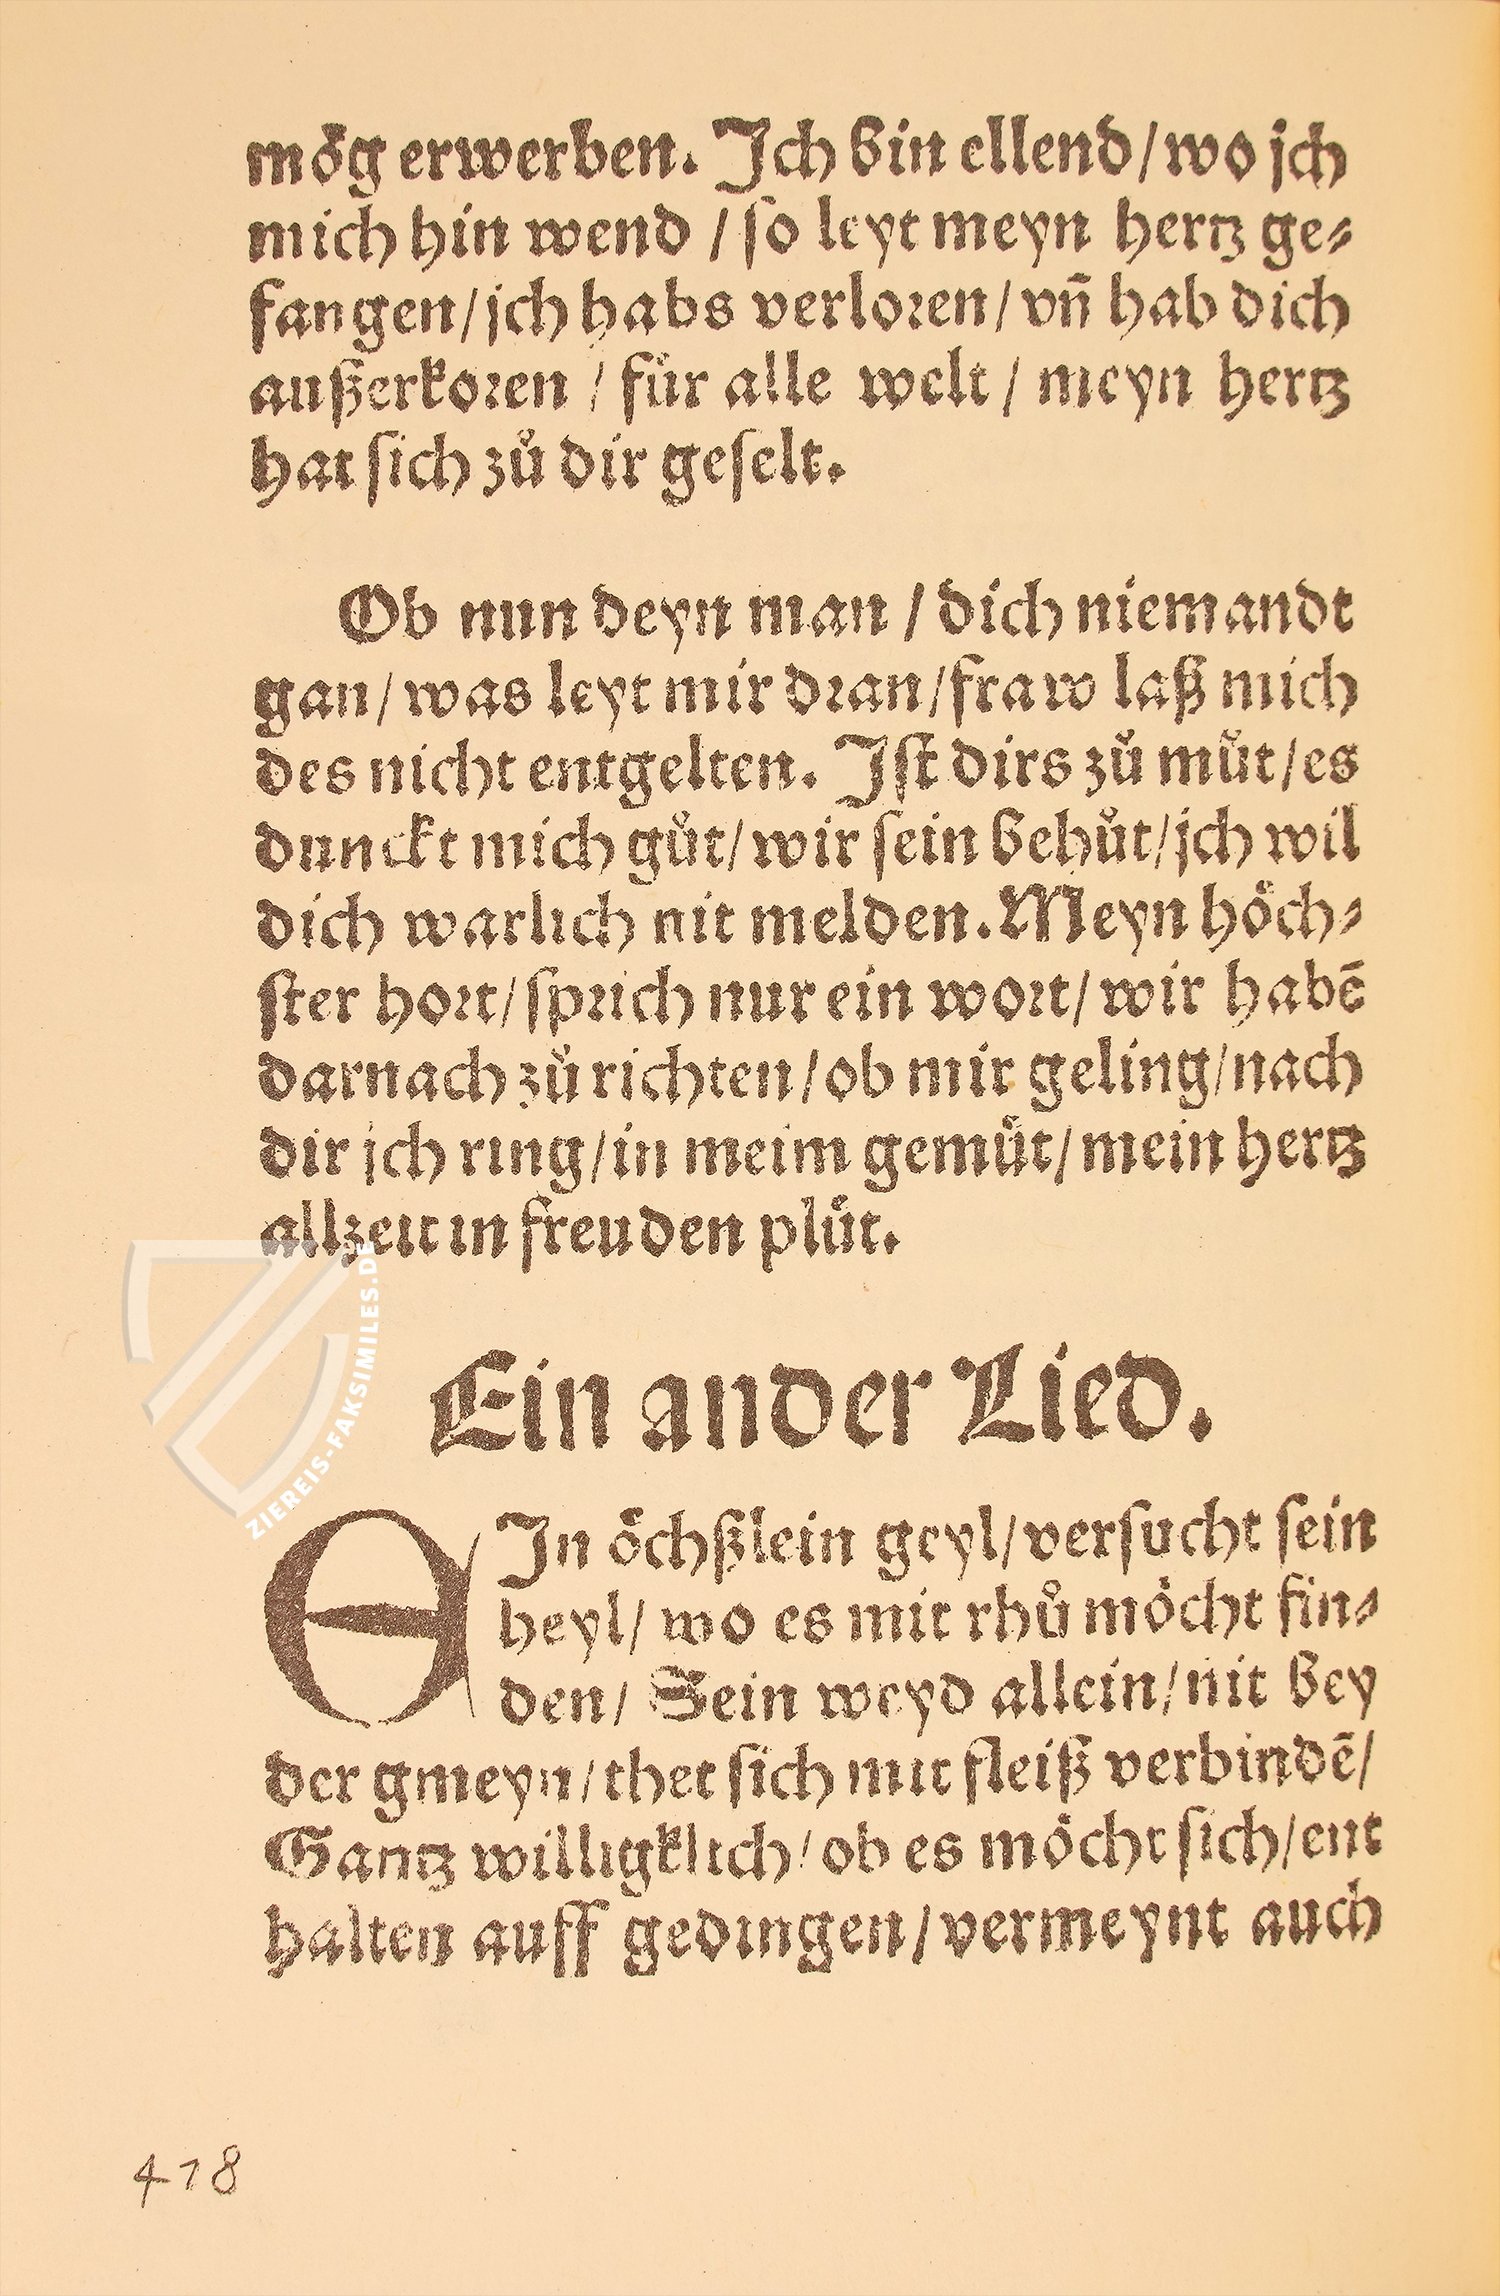 mög erwerben. Jch bin ellend/wo jch
mich hin wend /so leyt meyn hertz ge⸗
fangen/jch habs verloren/vñ hab dich
außerkoren / für alle welt / meyn hertz
hat sich zů dir geselt.
Ob nun deyn man / dich niemandt
gan/was leyt mir dran/fraw laß mich
des nicht entgelten. Jst dirs zů můt/es
dunckt mich gůt/wir sein behůt/jch wil
dich warlich nit melden.Meyn höch⸗
ster hort/sprich nur ein wort/wir habē
darnach zů richten/ob mir geling/nach
dir jch ring/in meim gemüt/mein hertz
allzeit in freuden plüt.
Ein ander Lied.
EJn öchßlein geyl/versucht sein
heyl/ wo es mit rhů möcht fin⸗
den/ Sein weyd allein/nit bey
der gmeyn/thet sich mit fleiß verbindē/
Gantz willigklich/ob es möcht sich/ent
halten auff gedingen/vermeynt auch
478
ZIEREIS-FAKSIMILES.DE